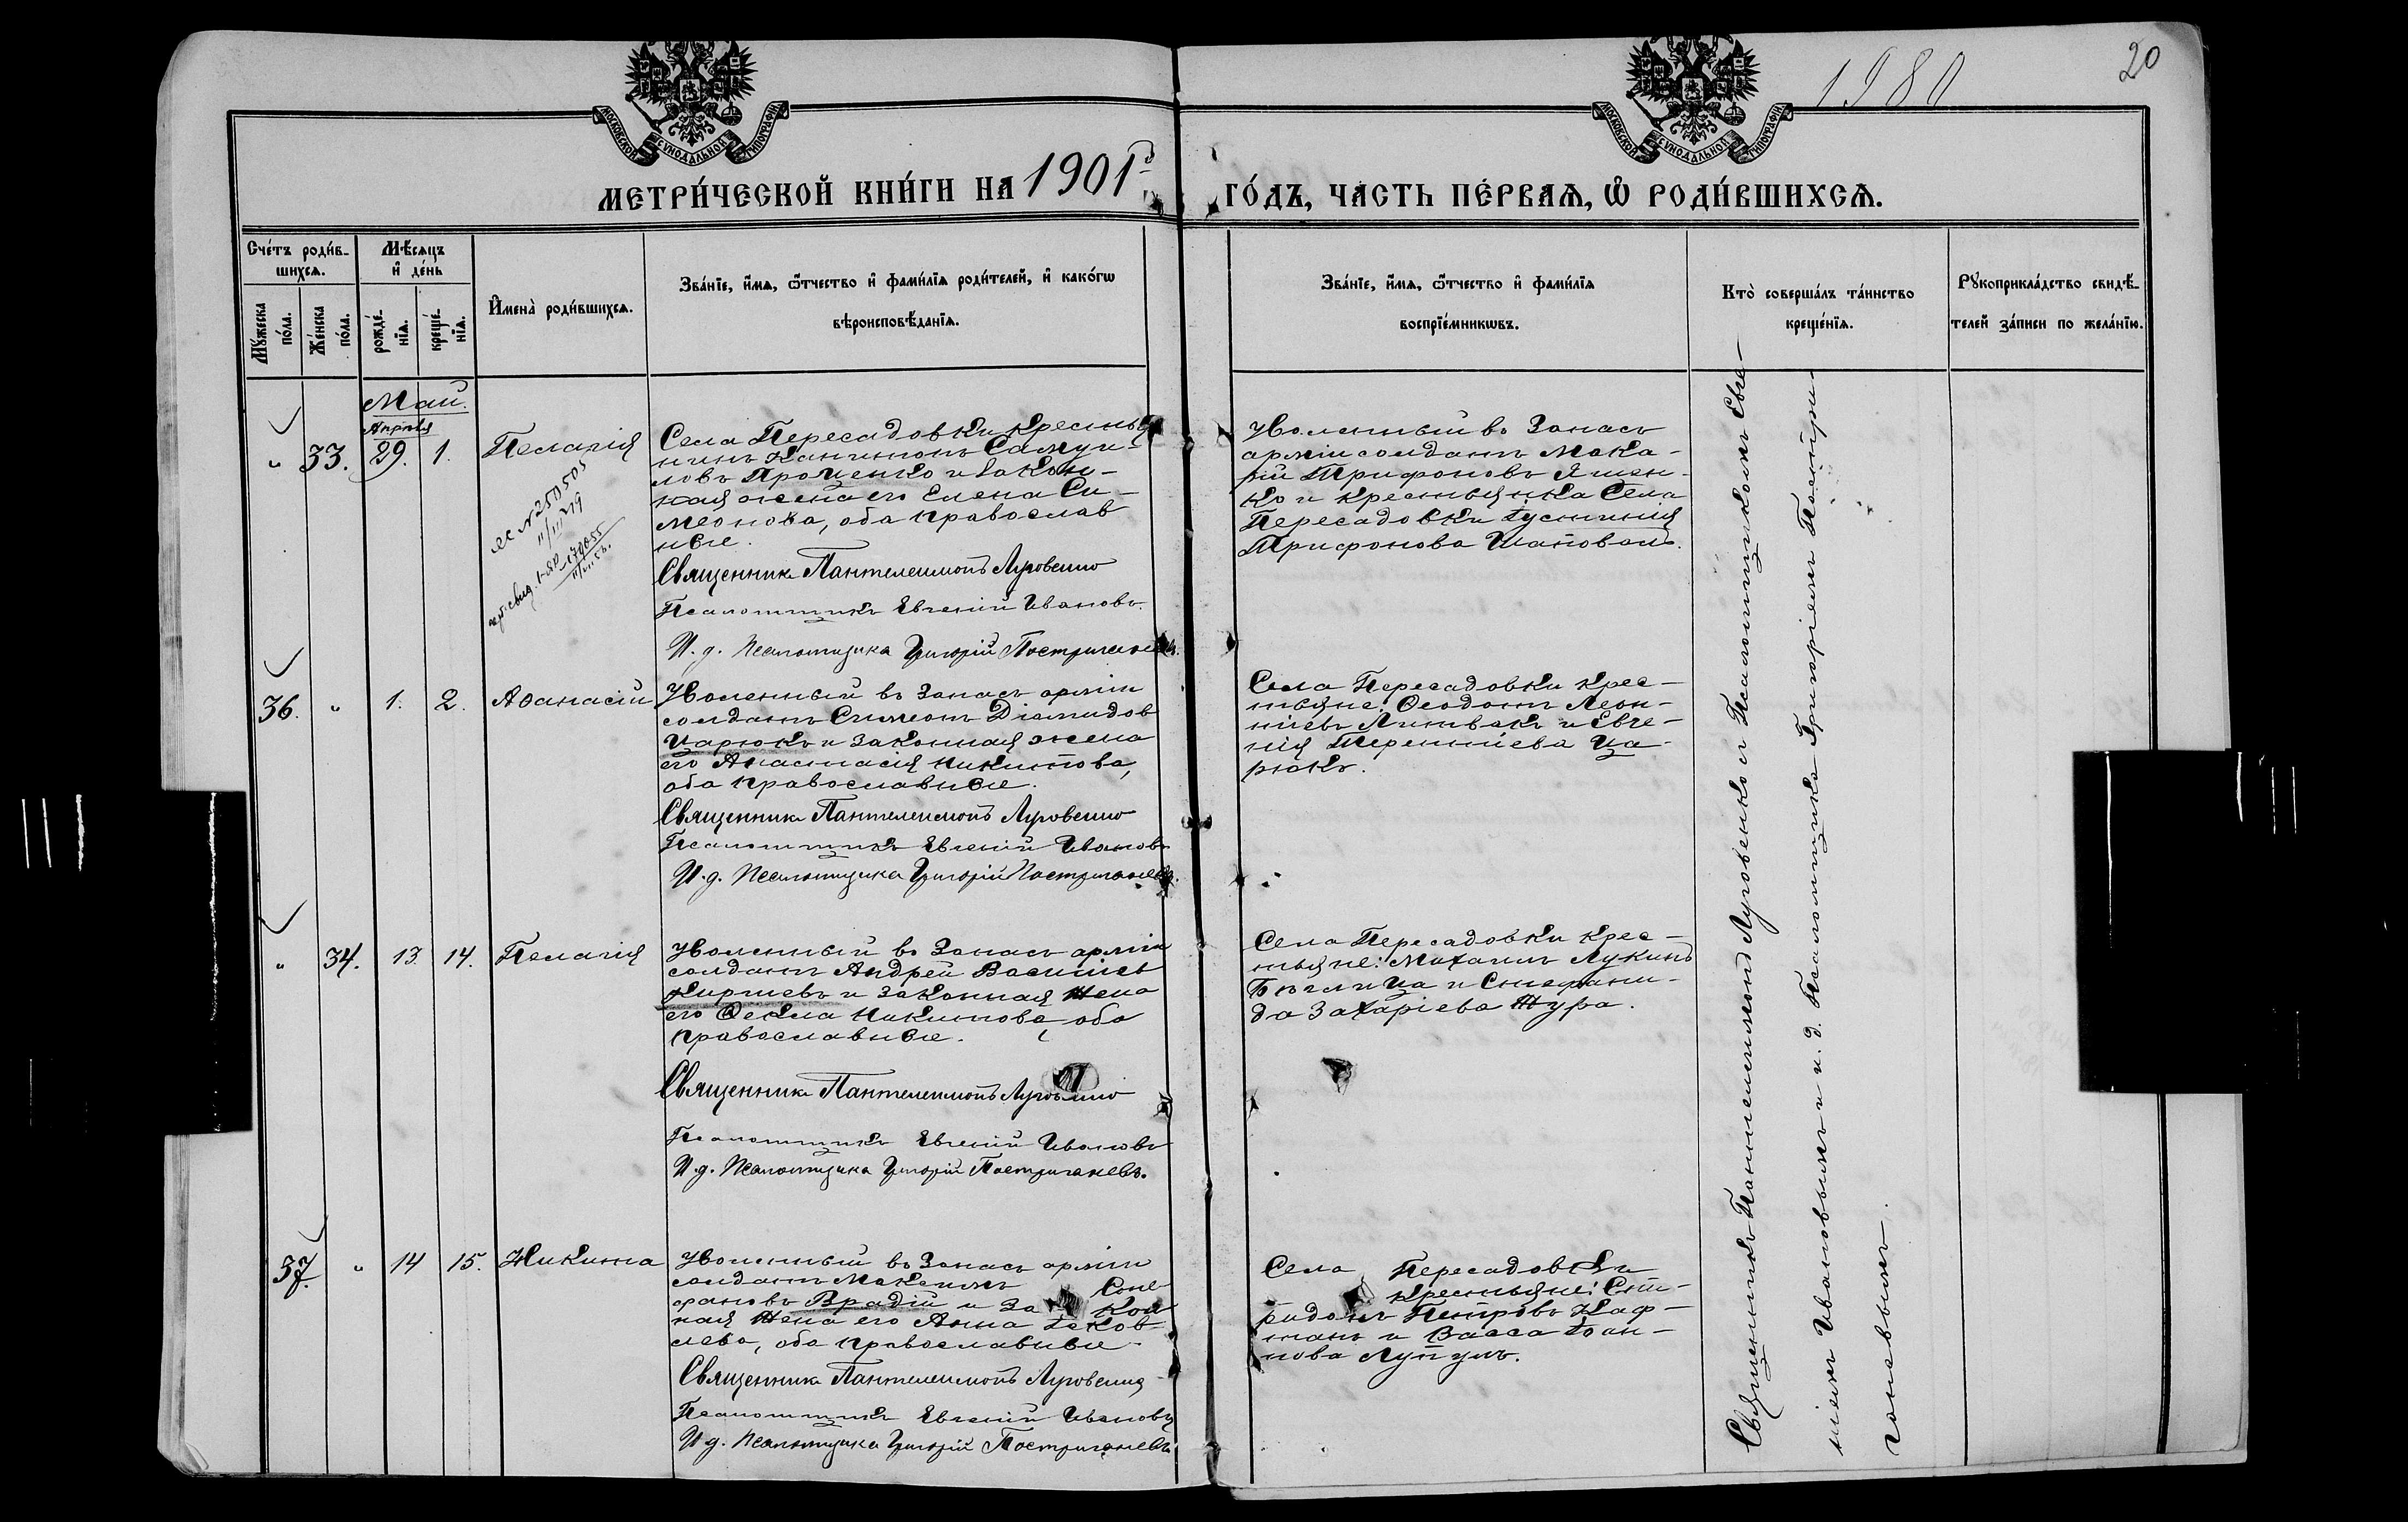 1980
20
МОСКОВСКОЙ СѴНОДАЛЬНОЙ ТИПОГРАФІИ
МОСКОВСКОЙ СѴНОДАЛЬНОЙ ТИПОГРАФІИ
МЕТРИ́ЧЕСКОЙ КНИ́ГИ НА 1901й
ГО́ДЪ, ЧА́СТЬ ПЕ́РВАѦ, Ѡ҆ РОДИ́ВШИХСѦ.
Сче́тъ роди́в-
шихсѧ.
Мꙋ́жеска
по́ла.
Же́нска
по́ла.
Мѣ́сѧцъ
и҆ де́нь
рожде́-
нїѧ.
креще́-
нїѧ.
И҆мена̀ роди́вшихсѧ.
Зва́нїе, и҆́мѧ, ѻ҆́тчество и҆ фами́лїѧ роди́телей, и҆ како́гѡ
вѣроисповѣ́данїѧ.
Зва́нїе, и҆́мѧ, ѻ҆́тчество и҆ фами́лїѧ
воспрїе́мникѡвъ.
Кто̀ соверша́лъ та́инство
креще́нїѧ.
Рꙋкоприкла́дство свидѣ́-
телей за́писи по жела́нїю.
Май.
Апрѣля
„ 33. 29. 1. Пелагія
Села Пересадовки крестья
нинъ Капитонъ Самуи-
ловъ Проценко и закон-
ная жена его Елена Си-
меонова, оба православ
ные.
Священникъ Пантелеимонъ Луговенко
Псаломщикъ Евгеній Ивановъ.
И. д. псаломщика Григорій Постриганевъ.
Уволенный въ Запасъ
арміи солдатъ Мака-
рій Трифоновъ Яцен-
ко и крестьянка Села
Пересадовки Іустинія
Трифонова Шаповал
№ 250505
36. „ 1. 2. Аѳанасій
Уволенный въ Запасъ арміи
солдатъ Симеонъ Діомидов
Царюкъ и законная жена
его Анастасія Никитова,
оба православные.
Священникъ Пантелеимонъ Луговенко
Псаломщикъ Евгеній Ивановъ
И. д. Псаломщика Григорій Постриганевъ.
Села Пересадовки крес-
тьяне: Ѳеодотъ Леон-
тіевъ Литвакъ и Евге-
нія Терентіева Ца-
рюкъ.
„ 34. 13. 14. Пелагія
Уволенный въ Запасъ арміи
солдатъ Андрей Василіев
Киріевъ и законная жена
его Ѳекла Никитова, оба
православные.
Священникъ Пантелеимонъ Луговенко
Псаломщикъ Евгеній Ивановъ
И. д. Псаломщика Григорій Постриганевъ.
Села Пересадовки крес-
тьяне: Михаилъ Лукинъ
Бѣглица и Стефани-
да Захаріева Жура.
37. „ 14 15. Никита
Уволенный въ Запасъ арміи
солдатъ Максимъ Сте
фановъ Врадій и За кон
ная жена его Анна Іаков
лева, оба православные.
Священникъ Пантелеимонъ Луговенко
Псаломщикъ Евгеній Ивановъ
И. д. Псаломщика Григорій Постриганевъ.
Села Пересадовки
крестьяне: Спи-
ридонъ Петровъ Каф-
танъ и Васса Іоан-
нова Лупулъ.
Священникъ Пантелеимонъ Луговенко съ Псаломщикомъ Евге-
ніемъ Ивановымъ и и. д. Псаломщика Григоріемъ Постри-
ганевымъ.